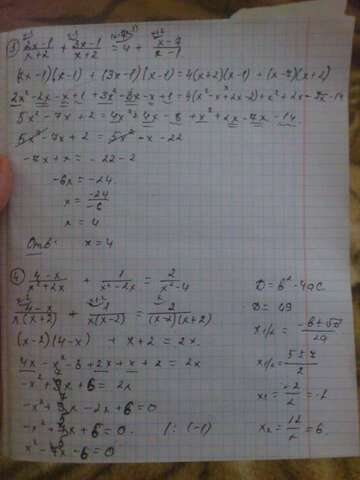 3) (2x-1)/(x+2) + (3x-1)/(x+2) = 4 + (x-7)/(x-1)
(2x-1)(x-1) + (3x-1)(x-1) = 4(x+2)(x-1) + (x-7)(x+2)
2x²-2x-x+1 + 3x²-3x-x+1 = 4(x²-x+2x-2)+x²+2x-7x-14
5x²-7x+2 = 4x²+4x-8+x²+2x-7x-14
5x²-7x+2 = 5x²-x-22
-7x+x = -22-2
-6x = -24
x = -24/-6
x = 4
Отв: x=4
4) (4-x)/(x²+2x) + 1/(x²-2x) = 2/(x²-4)
(4-x)/(x(x+2)) + 1/(x(x-2)) = 2/((x-2)(x+2))
(x-2)(4-x) + x+2 = 2x
4x-x²-8+2x+x+2 = 2x
+6 = 2x
-2x+6=0
+6=0 |:(-1)
x²-7x-6=0
D=b²-4ac
D=49
x1/2 = (-b±√D)/2a
x1/2 = (5±7)/2
x1 = -2/2 = -1
x2 = 12/2 = 6